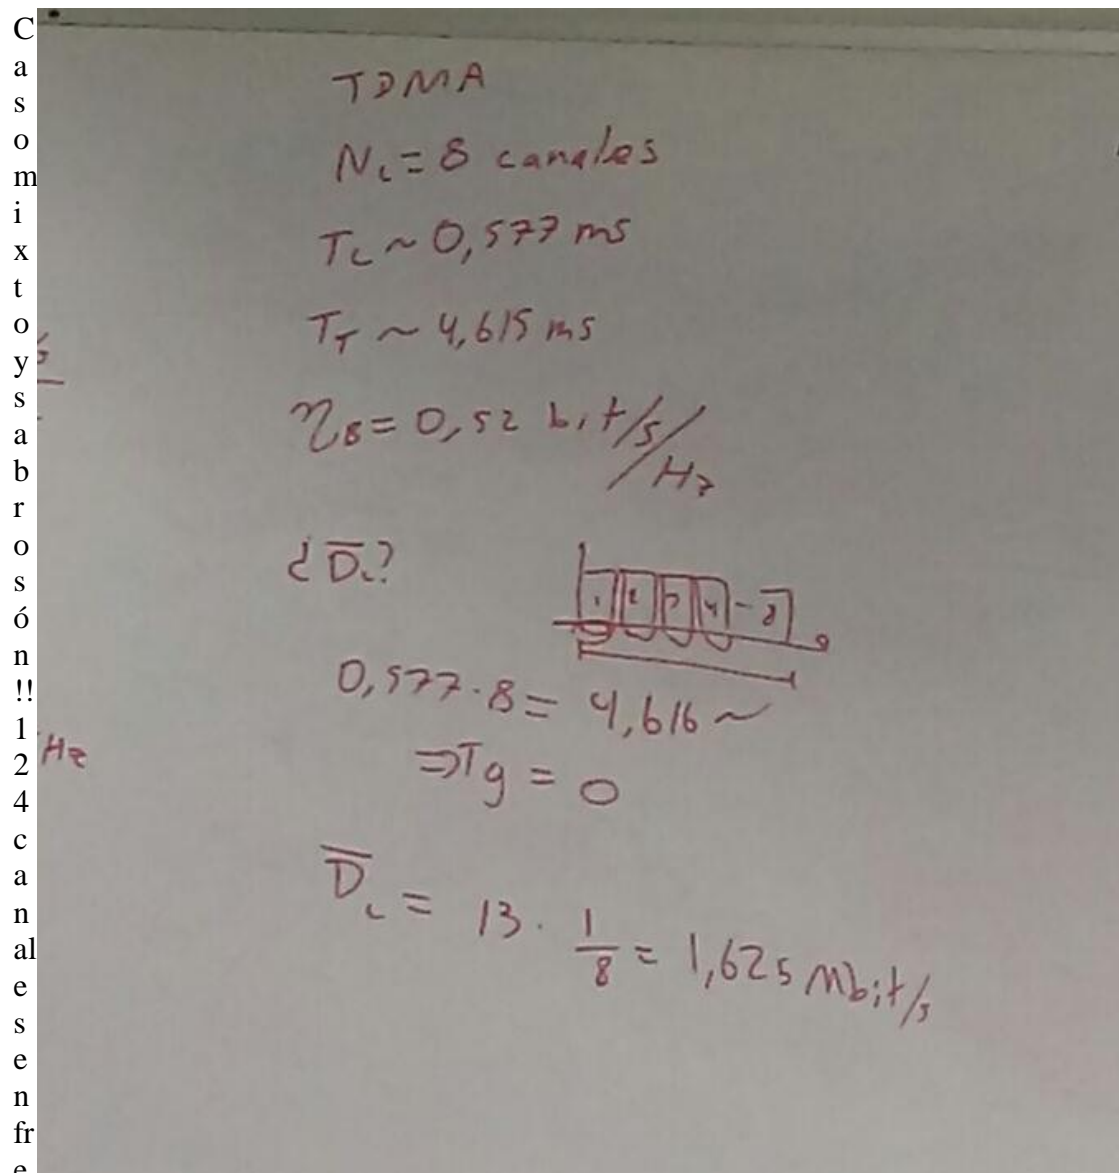 Caso mixto y sabrosón!! 124 canales en fre
TDMA
Nc = 8 canales
Tc ~ 0,577 ms
TT ~ 4,615 ms
ηB = 0,52 bit/s/Hz
¿D̅c?
1 2 3 4 - 8
0,577·8 = 4,616 ~
⇒Tg = 0
D̅c = 13 · 1/8 = 1,625 Mbit/s
Hz